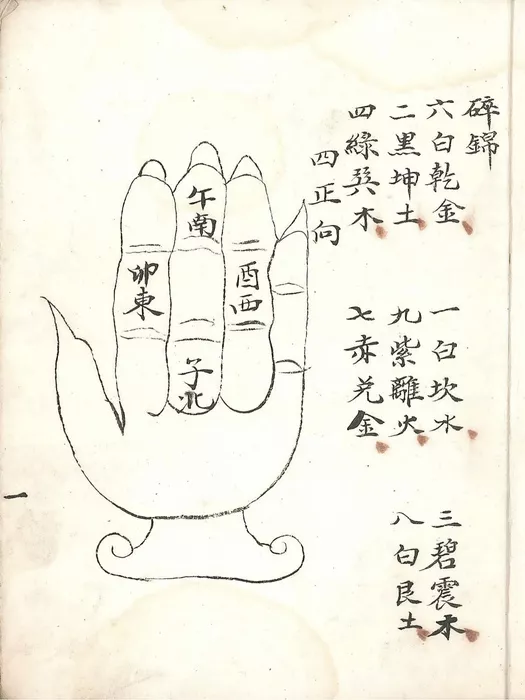 碎錦
六白乾金 一白坎水 三碧震木
二黑坤土 九紫離火 八白艮土
四綠巽木 七赤兌金
四正向
午南
酉西
卯東
子北
一